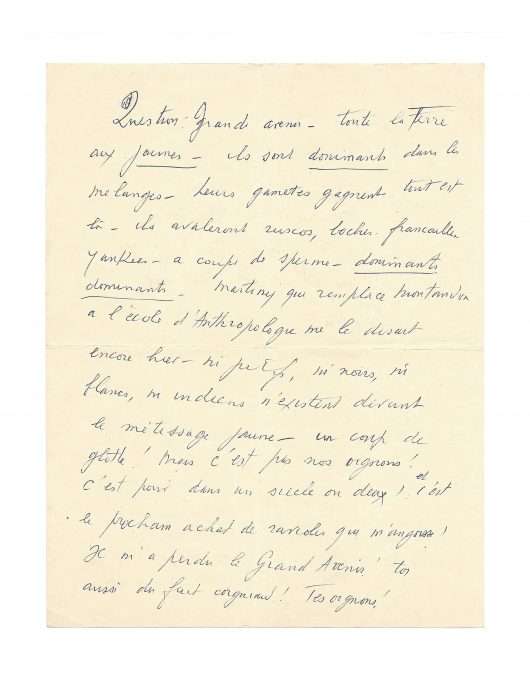 Question : Grande avenir – toute la Terre
aux jaunes – ils sont dominants dans les
melanges – leurs gametes gagnent tout est
là – ils avaleront ruscos, boches francailles
yankees – a coups de sperme – dominants
dominants – Martiny qui remplace Montandon
a l'école d'Anthropologie me le disait
encore hier – ni ni noirs, ni
blancs, ni indiens n'existent devant
le métissage jaune – un coup de
glotte ! Mais c'est pas nos oignons !
c'est pour dans un siecle ou deux ! et c'est
le prochain achat de ravioles qui m'angoisse !
Je m'a perdu le Grand Avenir ! toi
aussi du fait ! Tes oignons !